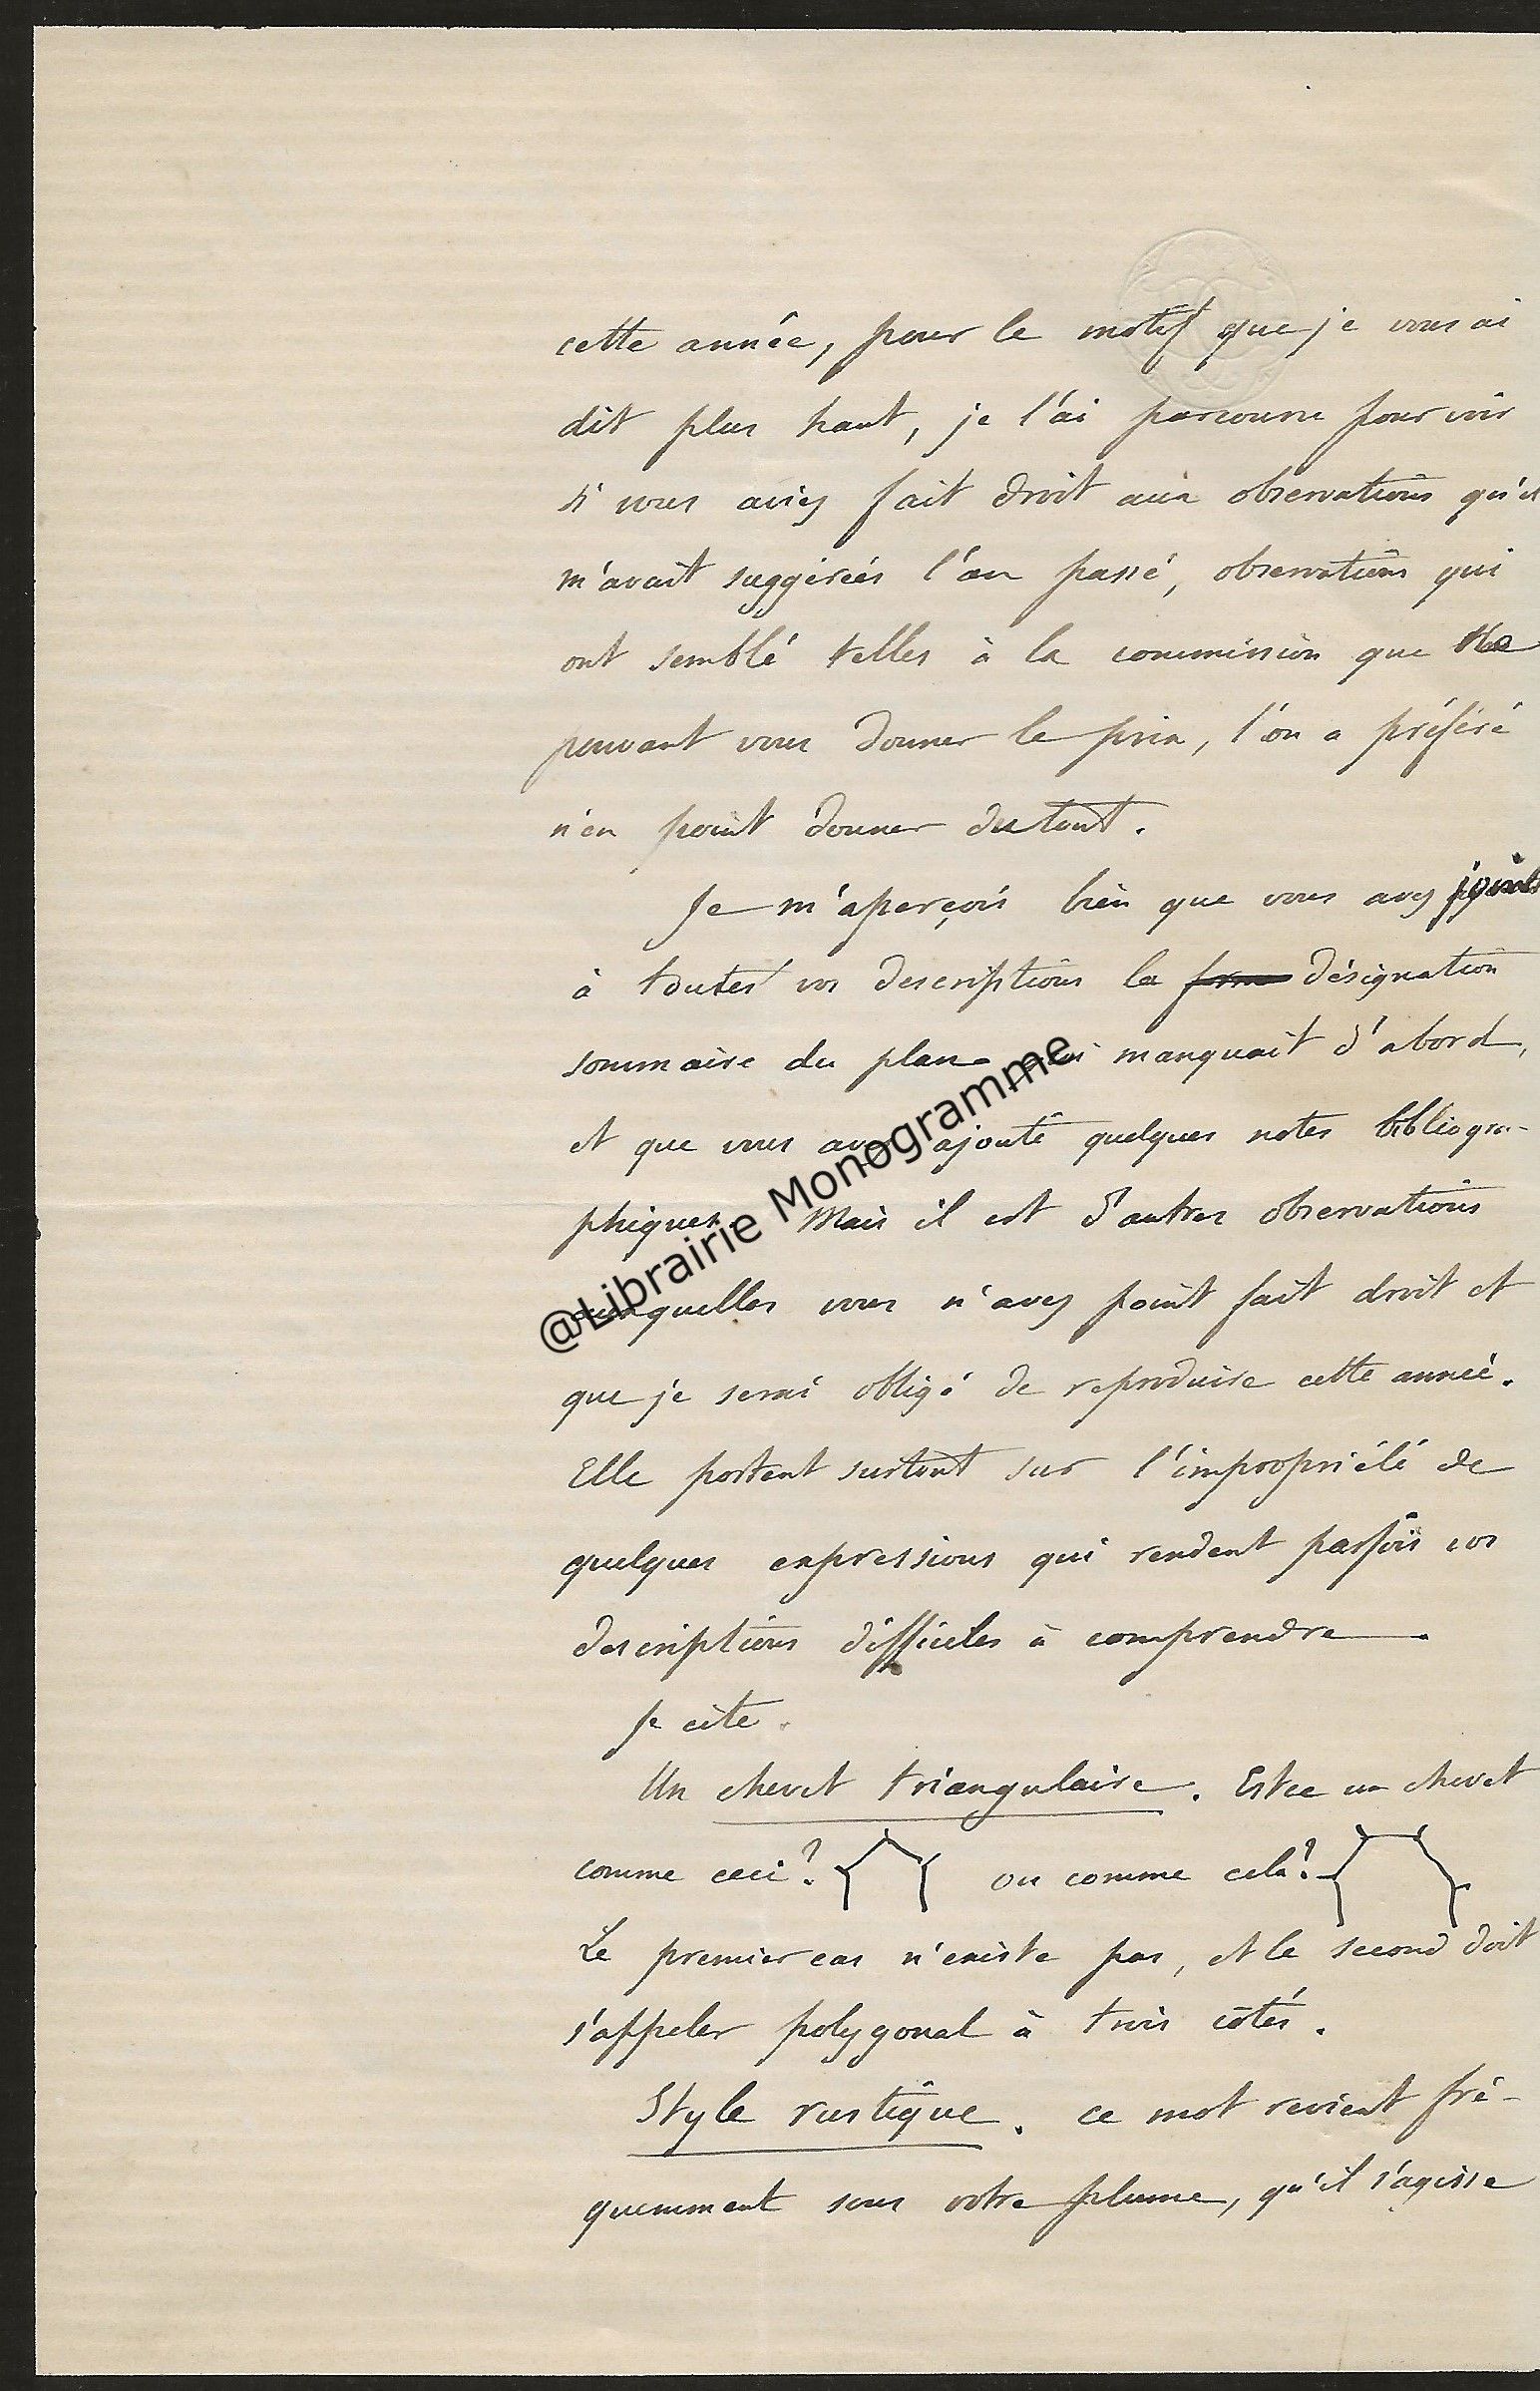 cette année, pour le motif que je vous ai
dit plus haut, je l'ai parcouru pour voir
si vous aviez fait droit aux observations qu'il
m'avait suggérées l'an passé, observations qui
ont semblé telles à la commission que ne
pouvant vous donner le prix, l'on a préféré
n'en point donner du tout.
Je m'aperçois bien que vous avez joint
à toutes vos descriptions la désignation
sommaire du plan qui manquait d'abord,
et que vous avez ajouté quelques notes bibliogra-
phiques. Mais il est d'autres observations
auxquelles vous n'avez point fait droit et
que je serai obligé de reproduire cette année.
Elle portent surtout sur l'impropriété de
quelques expressions qui rendent parfois vos
descriptions difficiles à comprendre.
Je cite.
Un chevet triangulaire. Estce un chevet
comme ceci? ou comme cela?
Le premier cas n'existe pas, et le second doit
s'appeler polygonal à trois côtés.
Style rustique. ce mot revient fré-
quemment sous votre plume, qu'il s'agisse
@Librairie Monogramme